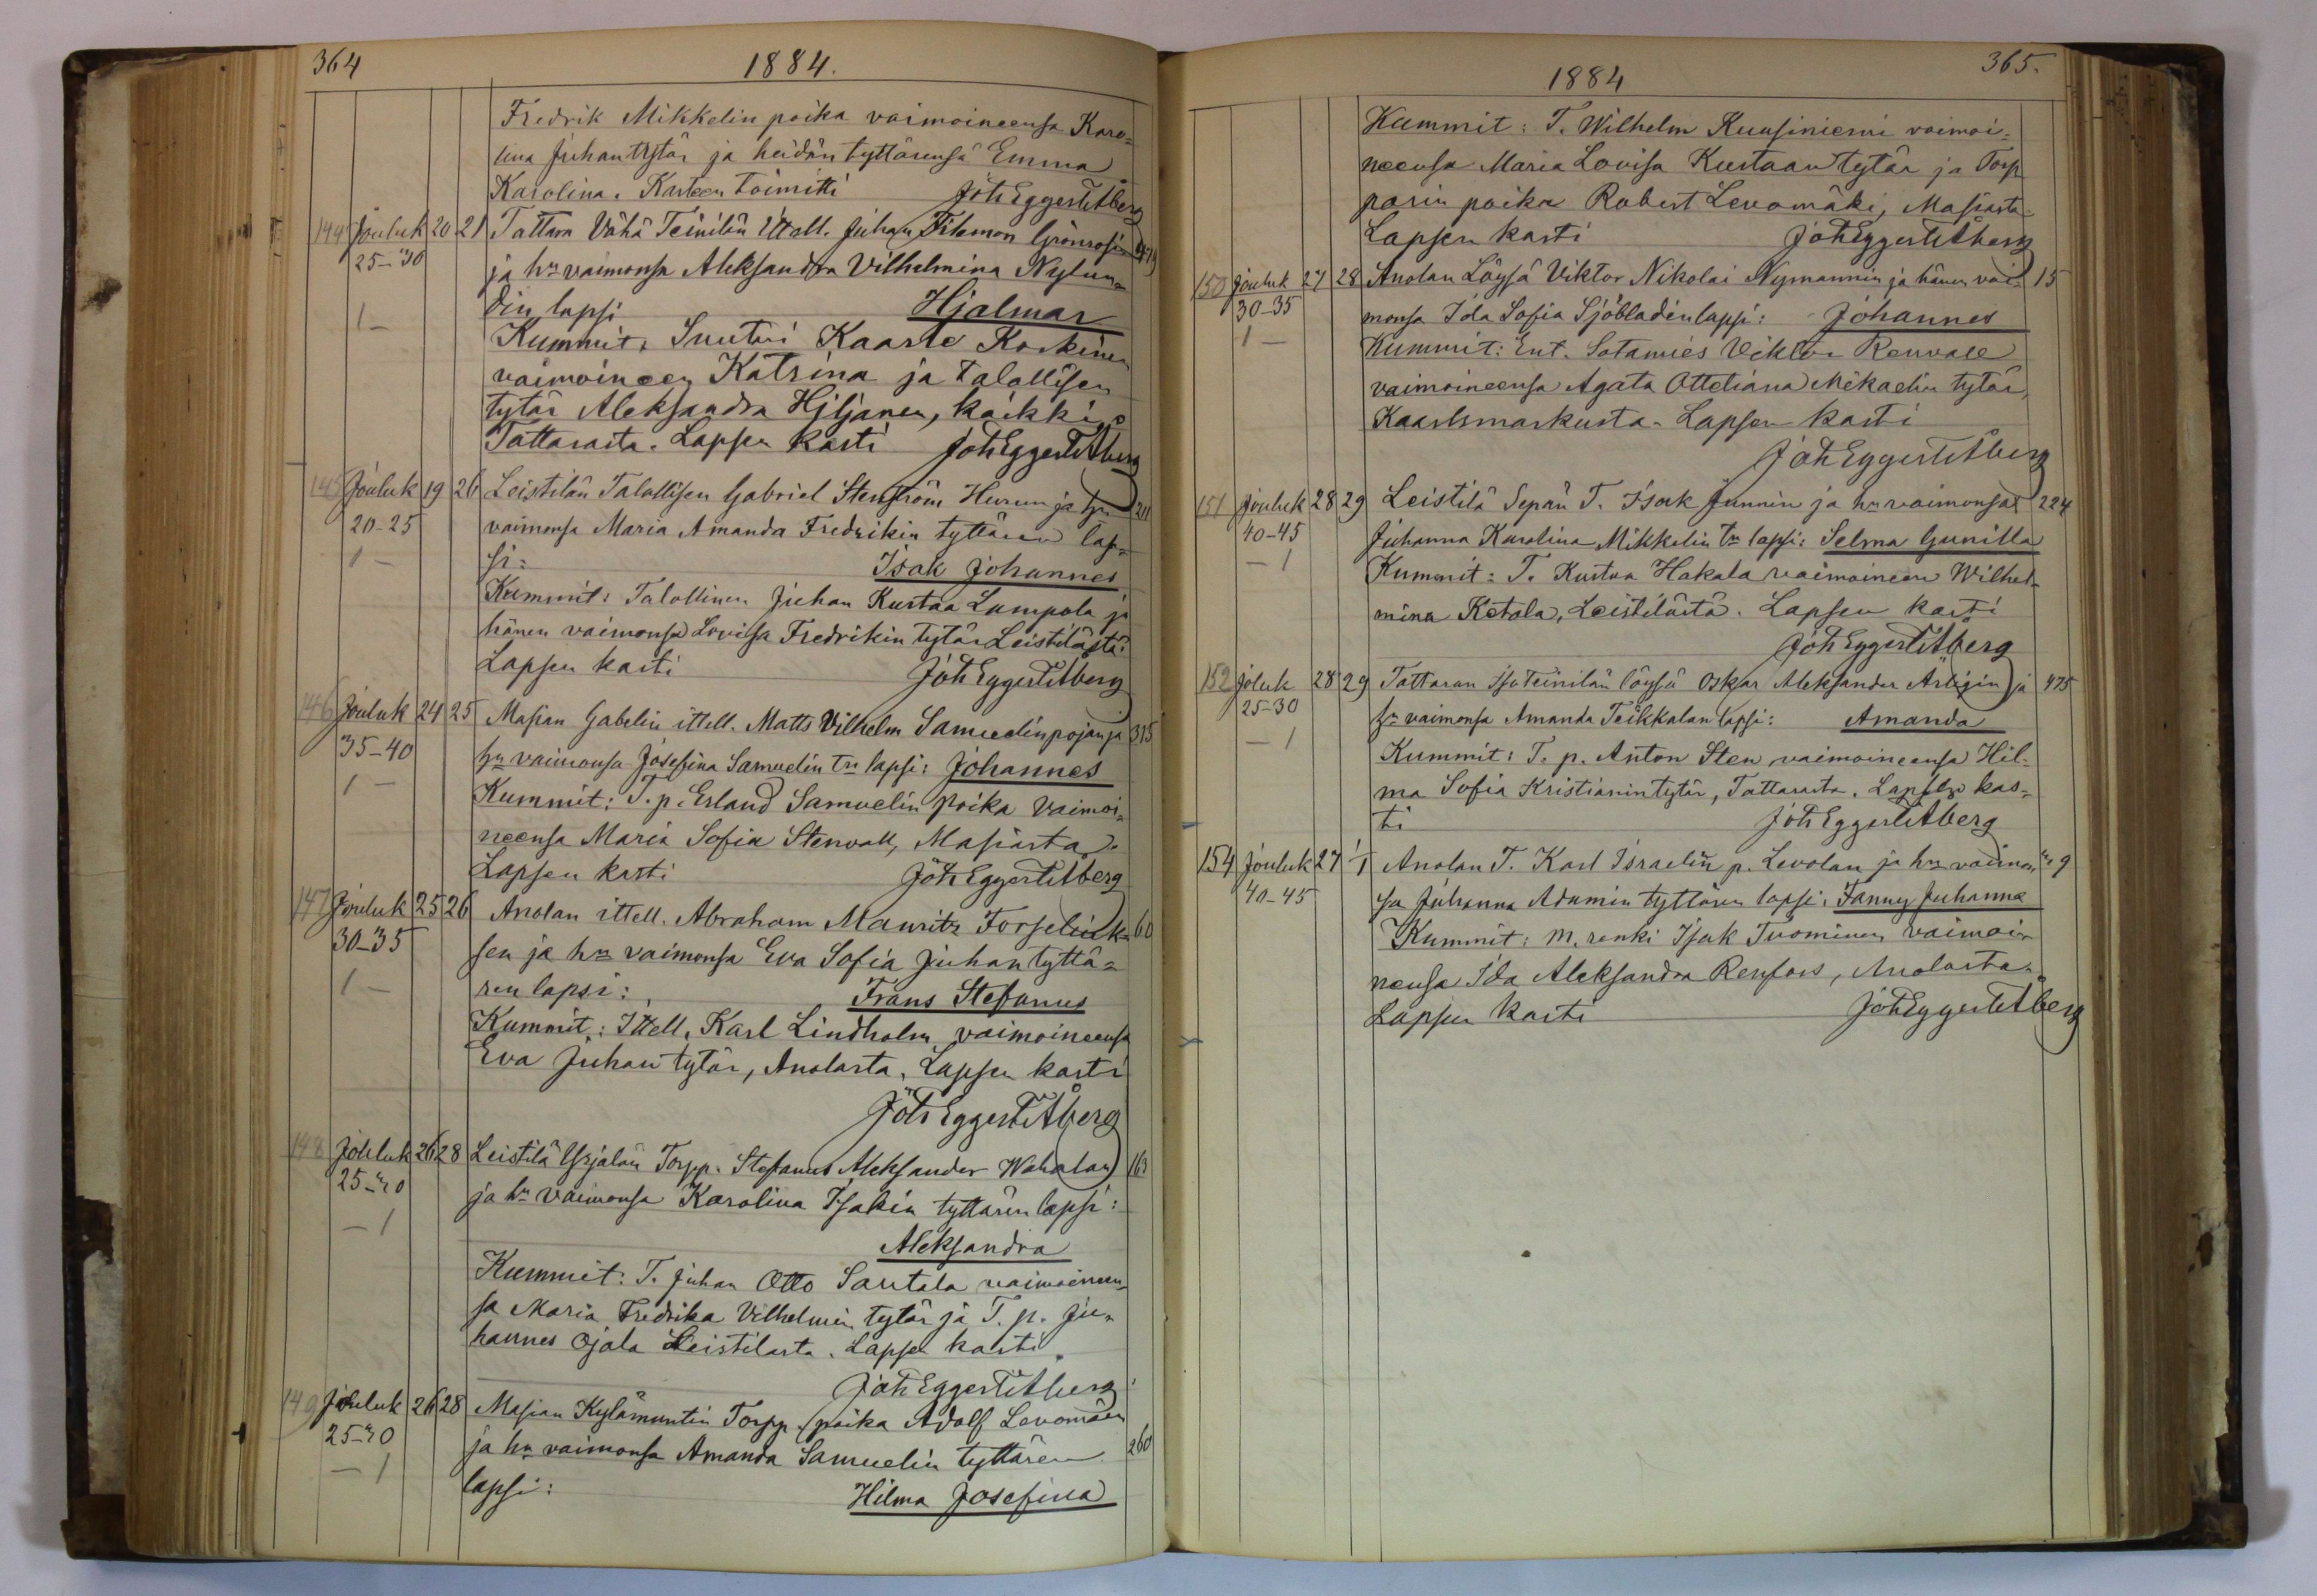 364
1884.
Fredrik Mikkelin poika vaimoineensa Karo=
lina Juhantytär ja heidän tyttärensä Emma
Karolina. Kasteen toimitti Joh Eggert Åberg
144 Jouluk 20 21 Tattara Vähä Teinilän Ittell. Juhan Filemon Grönroosin
25-30 ja hn vaimonsa Aleksandra Vilhelmina Nylun=
1 - din lapsi Hjalmar
Kummit: Suutari Kaarle Koskinen
vaimoineen Katrina ja talollisen
tytär Aleksandra Hiljanen, kaikki
Tattarasta. Lapsen kasti Joh Eggert Åberg
145 Jouluk 19 26 Leistilän Talollisen Gabriel Stenström Hurun ja hn 211
20-25 vaimonsa Maria Amanda Fredrikin tyttären lap=
1 - si: Isak Johannes
Kummit: Talollinen Juhan Kustaa Lampola ja
hänen vaimonsa Lovisa Fredrikin tytär Leistilästä.
Lapsen kasti Joh Eggert Åberg
146 Jouluk 24 25 Masian Gabelin ittell. Matts Vilhelm Samuelinpojan ja 315
35-40 hn vaimonsa Josefina Samuelin trn lapsi: Johannes
1 - Kummit: T. p. Erland Samuelin poika vaimoi=
neensa Maria Sofia Stenvall, Masiasta.
Lapsen kasti Joh Eggert Åberg
147 Jouluk 25 26 Anolan ittell. Abraham Mauritz Forselink= 60
30-35 sen ja hn vaimonsa Eva Sofia Juhan tyttä=
1 - ren lapsi: Frans Stefanus
Kummit: Ittell. Karl Lindholm vaimoineensa
Eva Juhan tytär, Anolasta. Lapsen kasti
Joh Eggert Åberg
148 Jouluk 26 28 Leistilä Yrjälän Torpp. Stefanus Aleksander Wahalan 163
25-30 ja hn vaimonsa Karolina Isakin tyttären lapsi:
- 1 Aleksandra
Kummit: T. Juhan Otto Santala vaimoineen=
sa Maria Fredrika Vilhelmin tytär ja T. p. Ju=
hannes Ojala Leistilasta. Lapsen kasti
Joh Eggert Åberg
149 Jouluk 26 28 Masian Kylämuntin Torpp. poika Adolf Levomäen
25-30 ja hn vaimonsa Amanda Samuelin tyttären 260
- 1 lapsi: Hilma Josefina
365.
1884
Kummit: T. Wilhelm Kuusiniemi vaimoi=
neensa Maria Lovisa Kustaan tytär ja Torp
parin poika Robert Levomäki, Masiasta
Lapsen kasti Joh Eggert Åberg
150 Jouluk 27 28 Anolan Löysä Viktor Nikolai Nymannin ja hänen vai= 15
30-35 monsa Ida Sofia Sjöbladin lapsi: Johannes
1 - Kummit: Ent. Sotamies Viktor Renvall
vaimoineensa Agata Otteliana Mikaelin tytär,
Kaarlsmarkusta. Lapsen kasti
Joh Eggert Åberg
151 Jouluk 28 29 Leistilä Sepän T. Isak Junnin ja hn vaimonsa 224
40-45 Juhanna Karolina Mikkelin trn lapsi: Selma Gunilla
- 1 Kummit: T. Kustaa Hakala vaimoineen Wilhel=
mina Ketola, Leistilästä. Lapsen kasti
Joh Eggert Åberg
152 Joluk 28 29 Tattaran Iso Teinilän löysä Oskar Aleksander ja 475
25-30 hn vaimonsa Amanda Teikkalan lapsi: Amanda
- 1 Kummit: T. p. Anton Sten vaimoineensa Hil=
ma Sofia Kristianintytär, Tattarasta. Lapsen kas=
ti Joh Eggert Åberg
154 Jouluk 27 1/1 Anolan T. Karl Israelin p. Levolan ja hn vaimon= 9
40-45 sa Juhanna Adamin tyttären lapsi: Fanny Juhanna
Kummit: M. renki Isak Tuominen vaimoi=
neensa Ida Aleksandra Renfors, Anolasta.
Lapsen kasti Joh Eggert Åberg